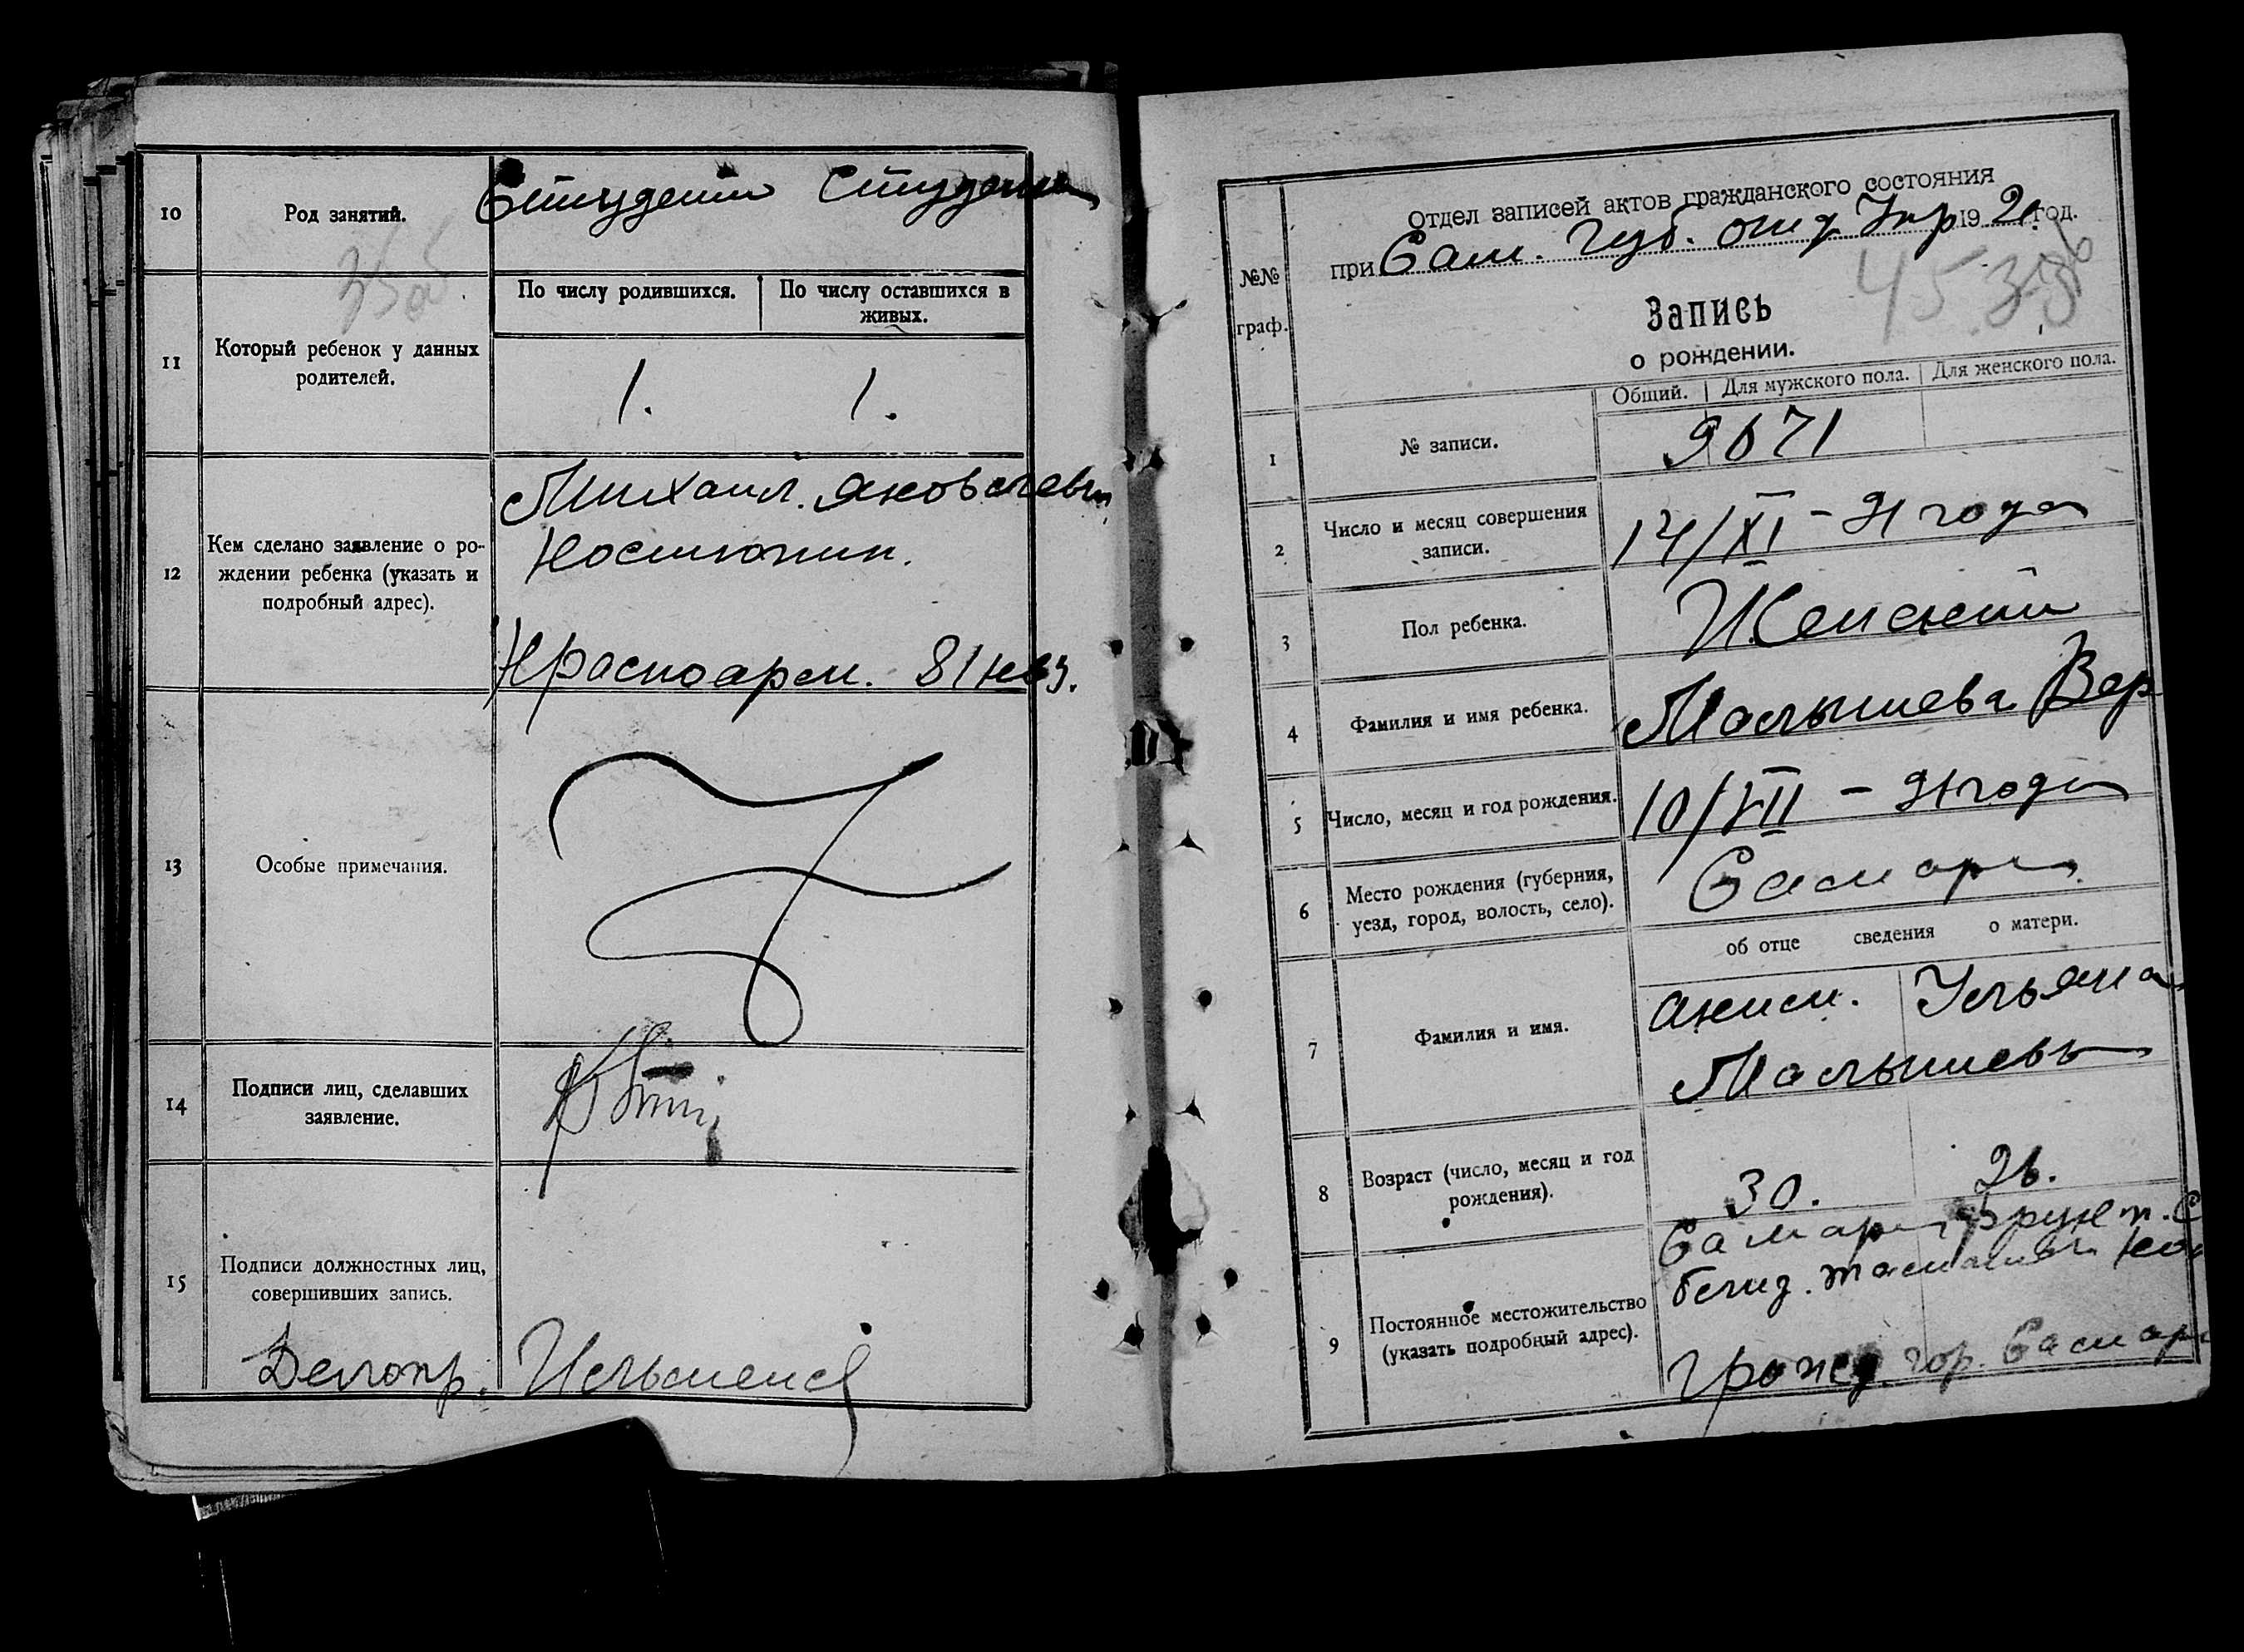 10
Род занятий.
Студент Студентка
11
Который ребенок у данных
родителей.
По числу родившихся.
По числу оставшихся в
живых.
1. 1.
12
Кем сделано заявление о ро-
ждении ребенка (указать и
подробный адрес).
Михаил. Яковлевич
Костюнин.
Красноарм. 81 кв
13
Особые примечания.
14
Подписи лиц, сделавших
заявление.
15
Подписи должностных лиц,
совершивших запись.
Делопр.
Отдел записей актов гражданского состояния
при Сам. Губ. отд Упр 1921 год.
4538
№№
граф.
Запись
о рождении.
Общий. Для мужского пола. Для женского пола.
1
№ записи.
9671
2
Число и месяц совершения
записи.
14/XI - 21 года
3
Пол ребенка.
Женский
4
Фамилия и имя ребенка.
Малышева Вер
5
Число, месяц и год рождения.
10/VII - 21 года
6
Место рождения (губерния,
уезд, город, волость, село).
Самара
об отце сведения о матери.
7
Фамилия и имя.
Аким. Ульяна
Малышевы
8
Возраст (число, месяц и год
рождения).
30. 26.
9
Постоянное местожительство
(указать подробный адрес).
Самара
гражд. гор. Самар